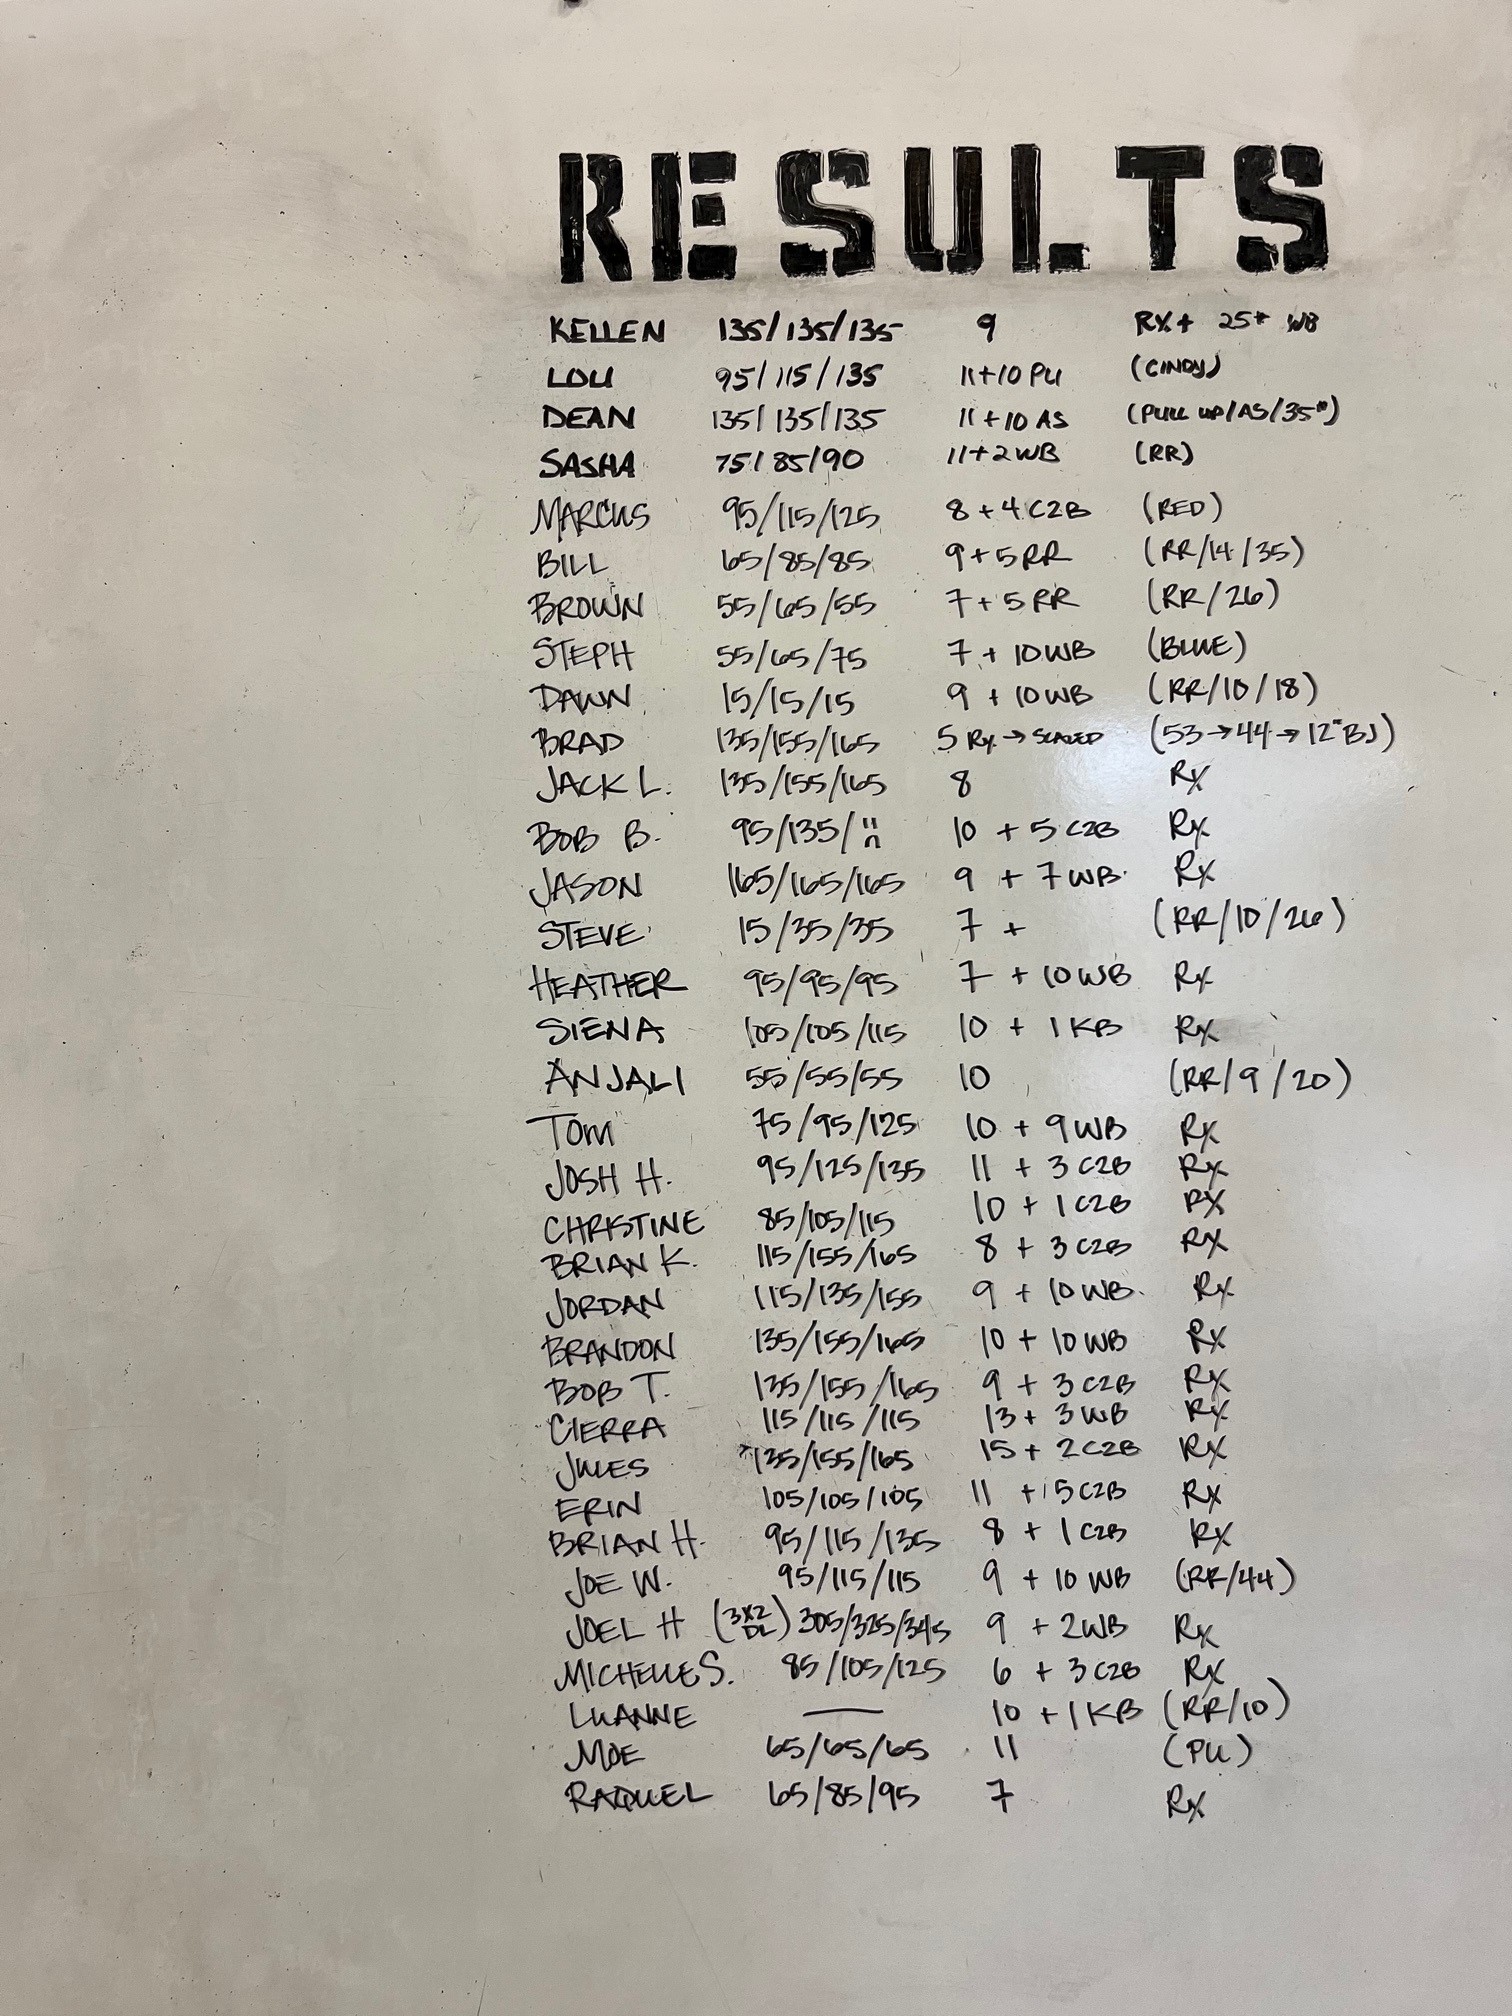 RESULTS
KELLEN 135/135/135 9 RX+ 25# WB
LOU 95/115/135 11+10 PU (CINDY)
DEAN 135/135/135 11+10 AS (PULL UP/AS/35#)
SASHA 75/85/90 11+2WB (RR)
MARCUS 95/115/125 8+4 C2B (RED)
BILL 65/85/85 9+5RR (RR/14/35)
BROWN 55/65/55 7+5RR (RR/26)
STEPH 55/65/75 7+10WB (BLUE)
DAWN 15/15/15 9+10WB (RR/10/18)
BRAD 135/155/165 5 RX→SCALED (53→44→12"BJ)
JACK L. 135/155/165 8 RX
BOB B. 95/135/ 10+5 C2B RX
JASON 165/165/165 9+7WB. RX
STEVE 15/35/35 7+ (RR/10/26)
HEATHER 95/95/95 7+10WB RX
SIENA 105/105/115 10+1KB RX
ANJALI 55/55/55 10 (RR/9/20)
TOM 75/95/125 10+9WB RX
JOSH H. 95/125/135 11+3 C2B RX
CHRISTINE 85/105/115 10+1 C2B RX
BRIAN K. 115/155/165 8+3 C2B RX
JORDAN 115/135/155 9+10WB. RX
BRANDON 135/155/165 10+10WB RX
BOB T. 135/155/165 9+3 C2B RX
CIERRA 115/115/115 13+3WB RX
JULES 135/155/165 15+2 C2B RX
ERIN 105/105/105 11+5 C2B RX
BRIAN H. 95/115/135 8+1 C2B RX
JOE W. 95/115/115 9+10 WB (RR/44)
JOEL H (3X2 DL) 305/325/345 9+2WB RX
MICHELLE S. 85/105/125 6+3 C2B RX
LUANNE — 10+1KB (RR/10)
MOE 65/65/65 11 (PU)
RAQUEL 65/85/95 7 RX